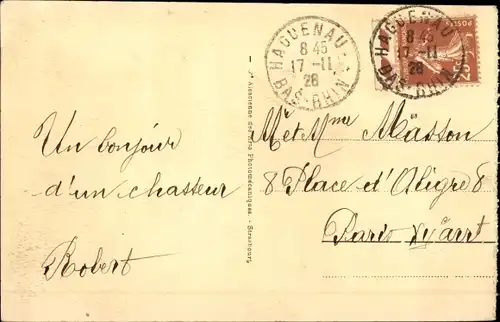 HAGUENAU
8 45
17-11
26
BAS-RHIN
HAGUENAU
8 45
17-11
26
BAS-RHIN
POSTES
25c
Un bonjour
d'un chasseur
Robert
Mr et Mme Masson
8 Place d'Aligre 8
Paris
Alsacienne des Arts Photomécaniques. - Strasbourg